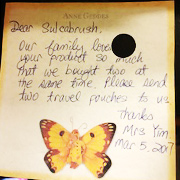 Anne Geddes
Dear Sulcabrush,
Our family loves
your product so much
that we bought two at
the same time. Please send
two travel pouches to us
Thanks
Mrs Yim
Mar 5, 2007